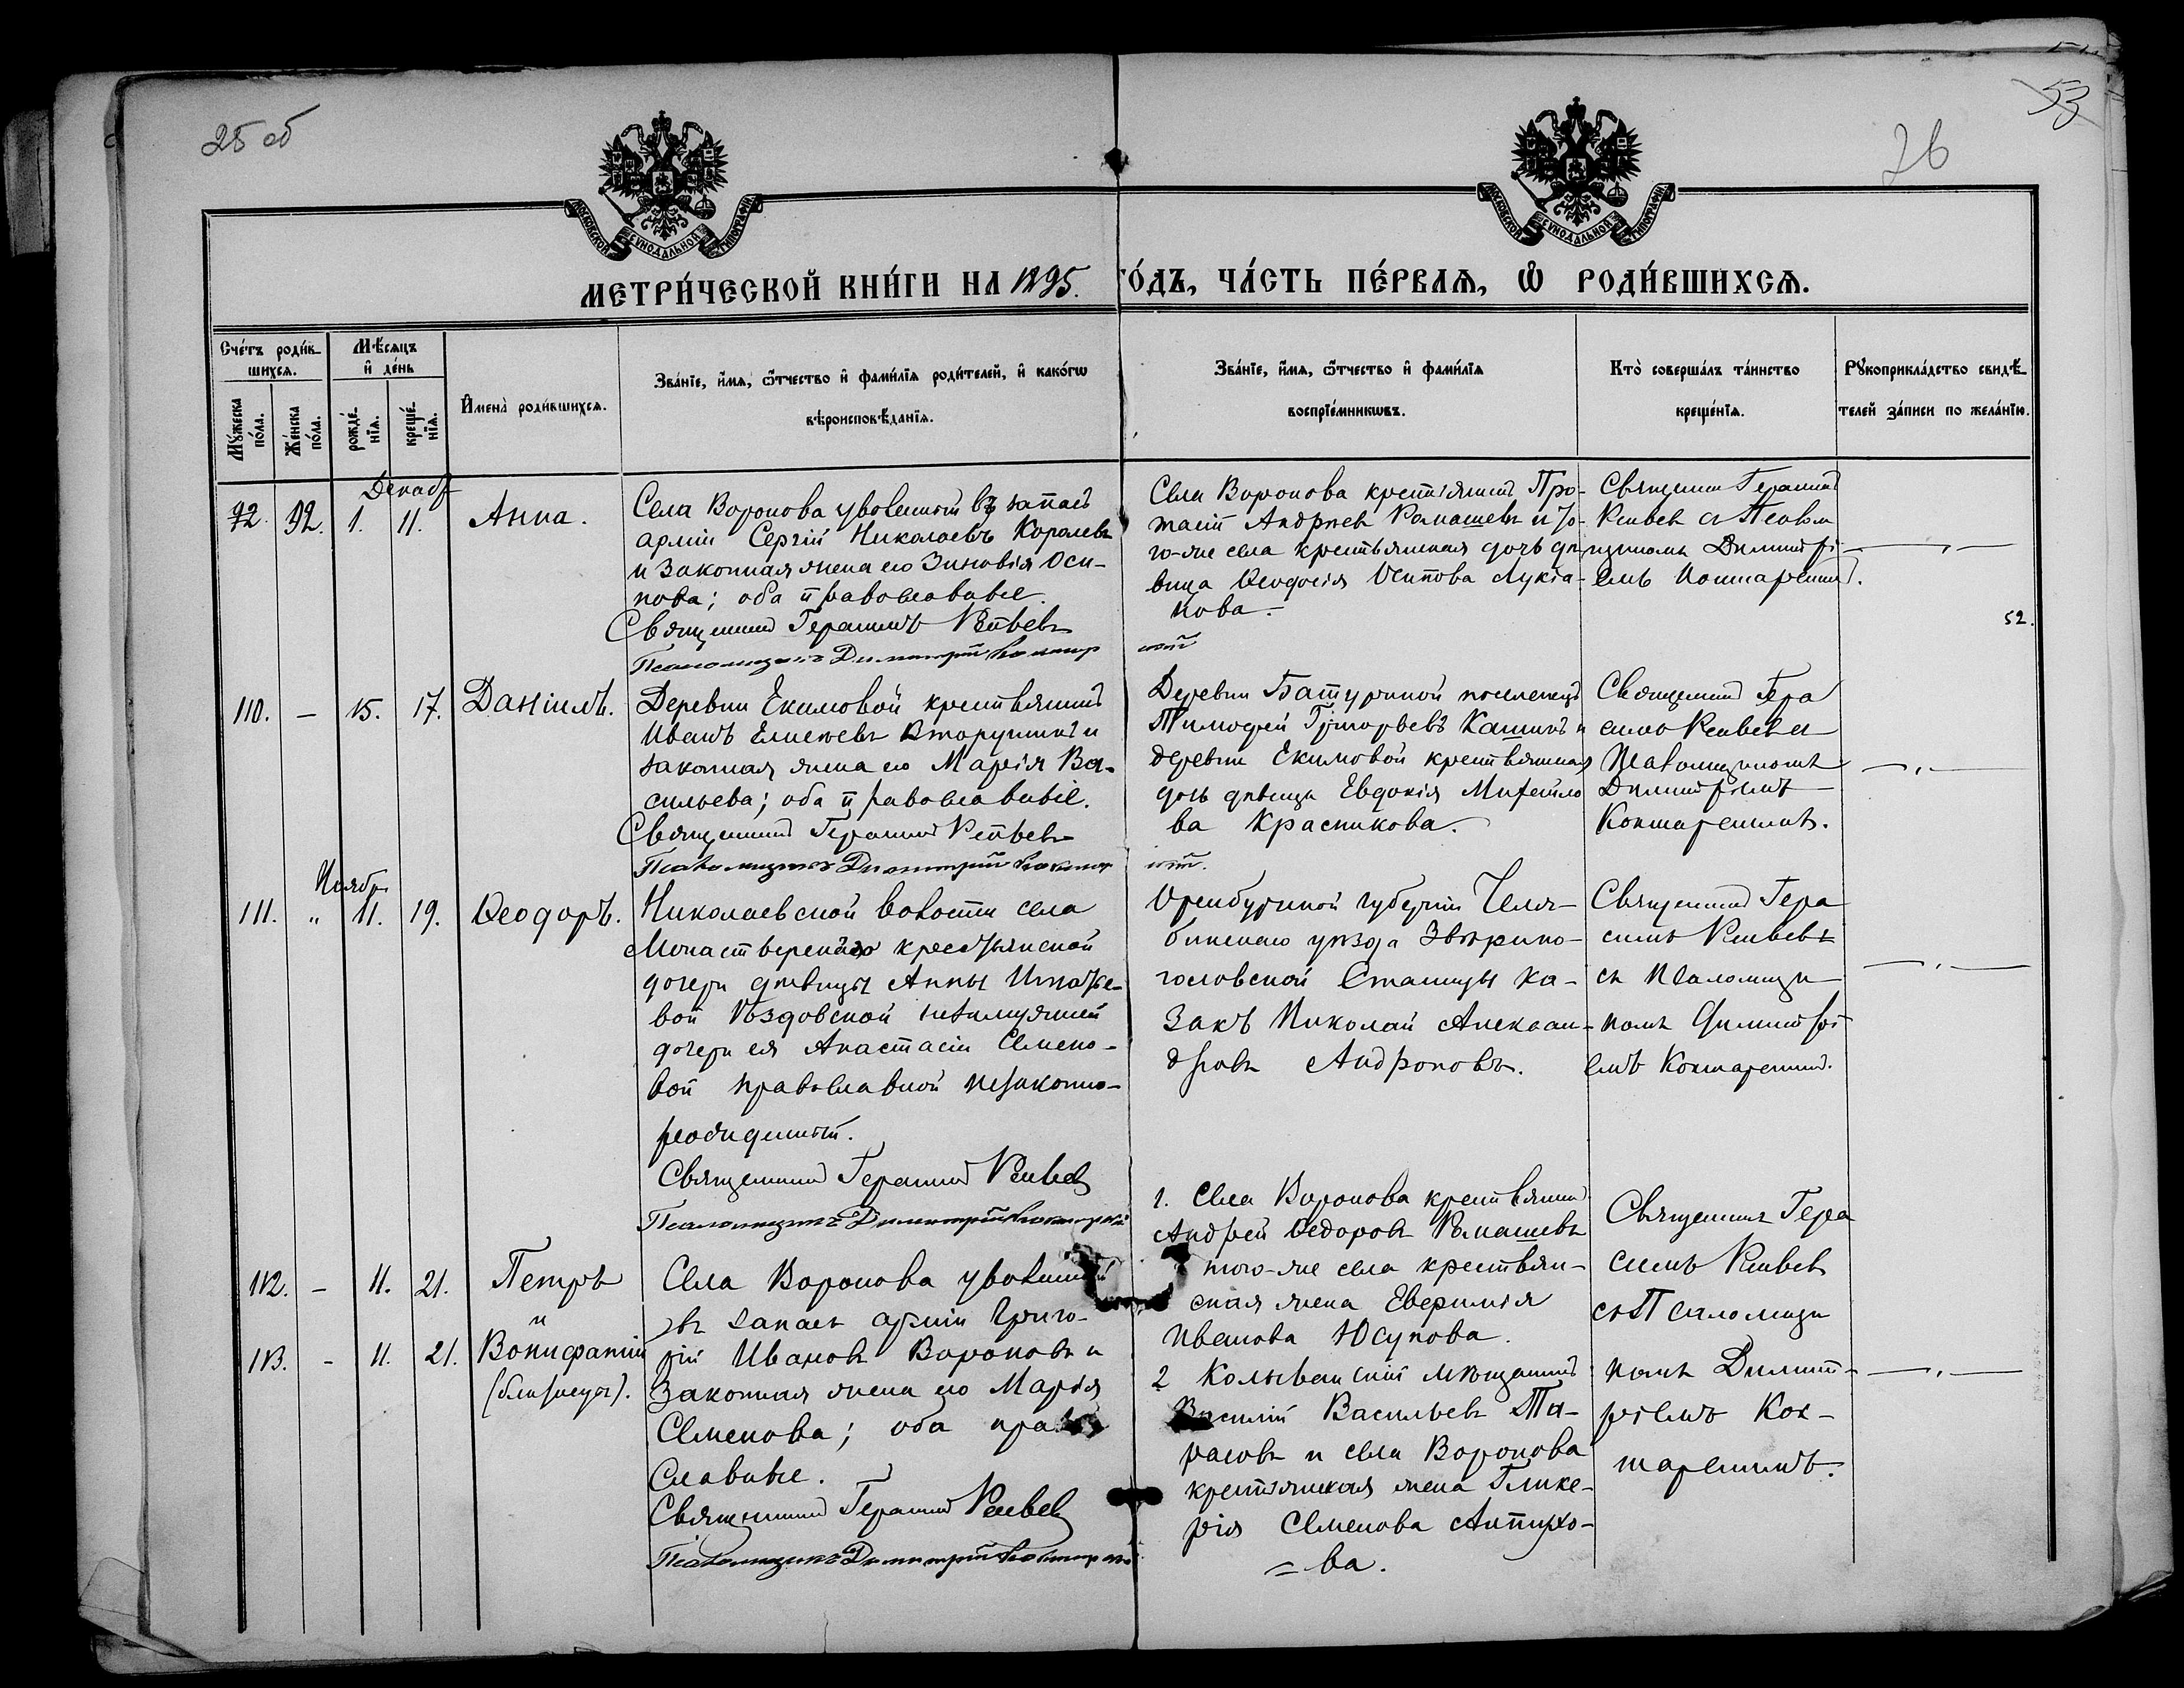 25 об
26
53
МОСКОВСКОЙ СѴНОДАЛЬНОЙ ТИПОГРАФІИ
МОСКОВСКОЙ СѴНОДАЛЬНОЙ ТИПОГРАФІИ
МЕТРИ́ЧЕСКОЙ КНИ́ГИ НА 1895. ГО́ДЪ, ЧА́СТЬ ПЕ́РВАѦ, Ѡ҆ РОДИ́ВШИХСѦ.
Сче́тъ роди́в-
шихсѧ.
Мѣ́сѧцъ
и҆ де́нь
Мꙋ́жеска
по́ла.
Же́нска
по́ла.
рожде́-
нїѧ.
креще́-
нїѧ.
И҆мена̀ роди́вшихсѧ.
Зва́нїе, и҆́мѧ, ѻ҆́тчество и҆ фами́лїѧ роди́телей, и҆ како́гѡ
вѣроисповѣ́данїѧ.
Зва́нїе, и҆́мѧ, ѻ҆́тчество и҆ фами́лїѧ
воспрїе́мникѡвъ.
Кто̀ соверша́лъ та́инство
креще́нїѧ.
Рꙋкоприкла́дство свидѣ́-
телей за́писи по жела́нїю.
Декабр
92. 1. 11. Анна.
Села Воронова уволенный въ запасъ
арміи Сергій Николаевъ Королевъ
и законная жена его Зиновія Оси-
пова; оба православные.
Священникъ Герасимъ
Псаломщикъ Димитрій
Села Воронова крестьянинъ Про-
тасій Андреевъ Ромашевъ и то-
го-же села крестьянская дочь дѣ-
вица Ѳеодосія Осипова Лукья-
нова.
Священникъ Герасимъ
съ Псалом
щикомъ Димитрі-
емъ
52.
110. — 15. 17. Даніилъ.
Деревни Екимовой крестьянинъ
Иванъ Елисеевъ Вторушинъ и
законная жена его Марія Ва-
сильева; оба православные.
Священникъ Герасимъ
Псаломщикъ Димитрій
Деревни Батуриной поселенецъ
Тимофей Григорьевъ Кашинъ и
деревни Екимовой крестьянская
дочь дѣвица Евдокія Михайло
ва Красикова.
Священникъ Гера
симъ
Псаломщикомъ
Димитріемъ
Ноябр.
111. „ 11. 19. Ѳеодоръ.
Николаевской волости села
крестьянской
дочери дѣвицы Анны Игнатье-
вой
дочери ея Анастасіи Семено-
вой православной незаконно-
рожденный.
Священникъ Герасимъ
Псаломщикъ Димитрій
Оренбургской губерніи Челя-
бинскаго уѣзда Звѣрино-
головской Станицы ка-
закъ Николай Алексан-
дровъ Андроновъ.
Священникъ Гера
симъ
съ Псаломщи
комъ Димитрі
емъ
112. — 11. 21. Петръ
и
113. - 11. 21. Вонифатій
(близнецы).
Села Воронова уволенный
въ запасъ арміи Григо-
рій Ивановъ Вороновъ и
законная жена его Марія
Семенова; оба право
славные.
Священникъ Герасимъ
Псаломщикъ Димитрій
1. Села Воронова крестьянинъ
Андрей Ѳедоровъ Ромашевъ
того-же села крестьян-
ская жена Евфимія
Иванова Юсупова.
2 Колыванскій мѣщанинъ
Василій Васильевъ Та-
расовъ и села Воронова
крестьянская жена Глике-
рія Семенова Антихо-
= ва.
Священникъ Гера
симъ
съ Псаломщи
комъ Димит-
ріемъ